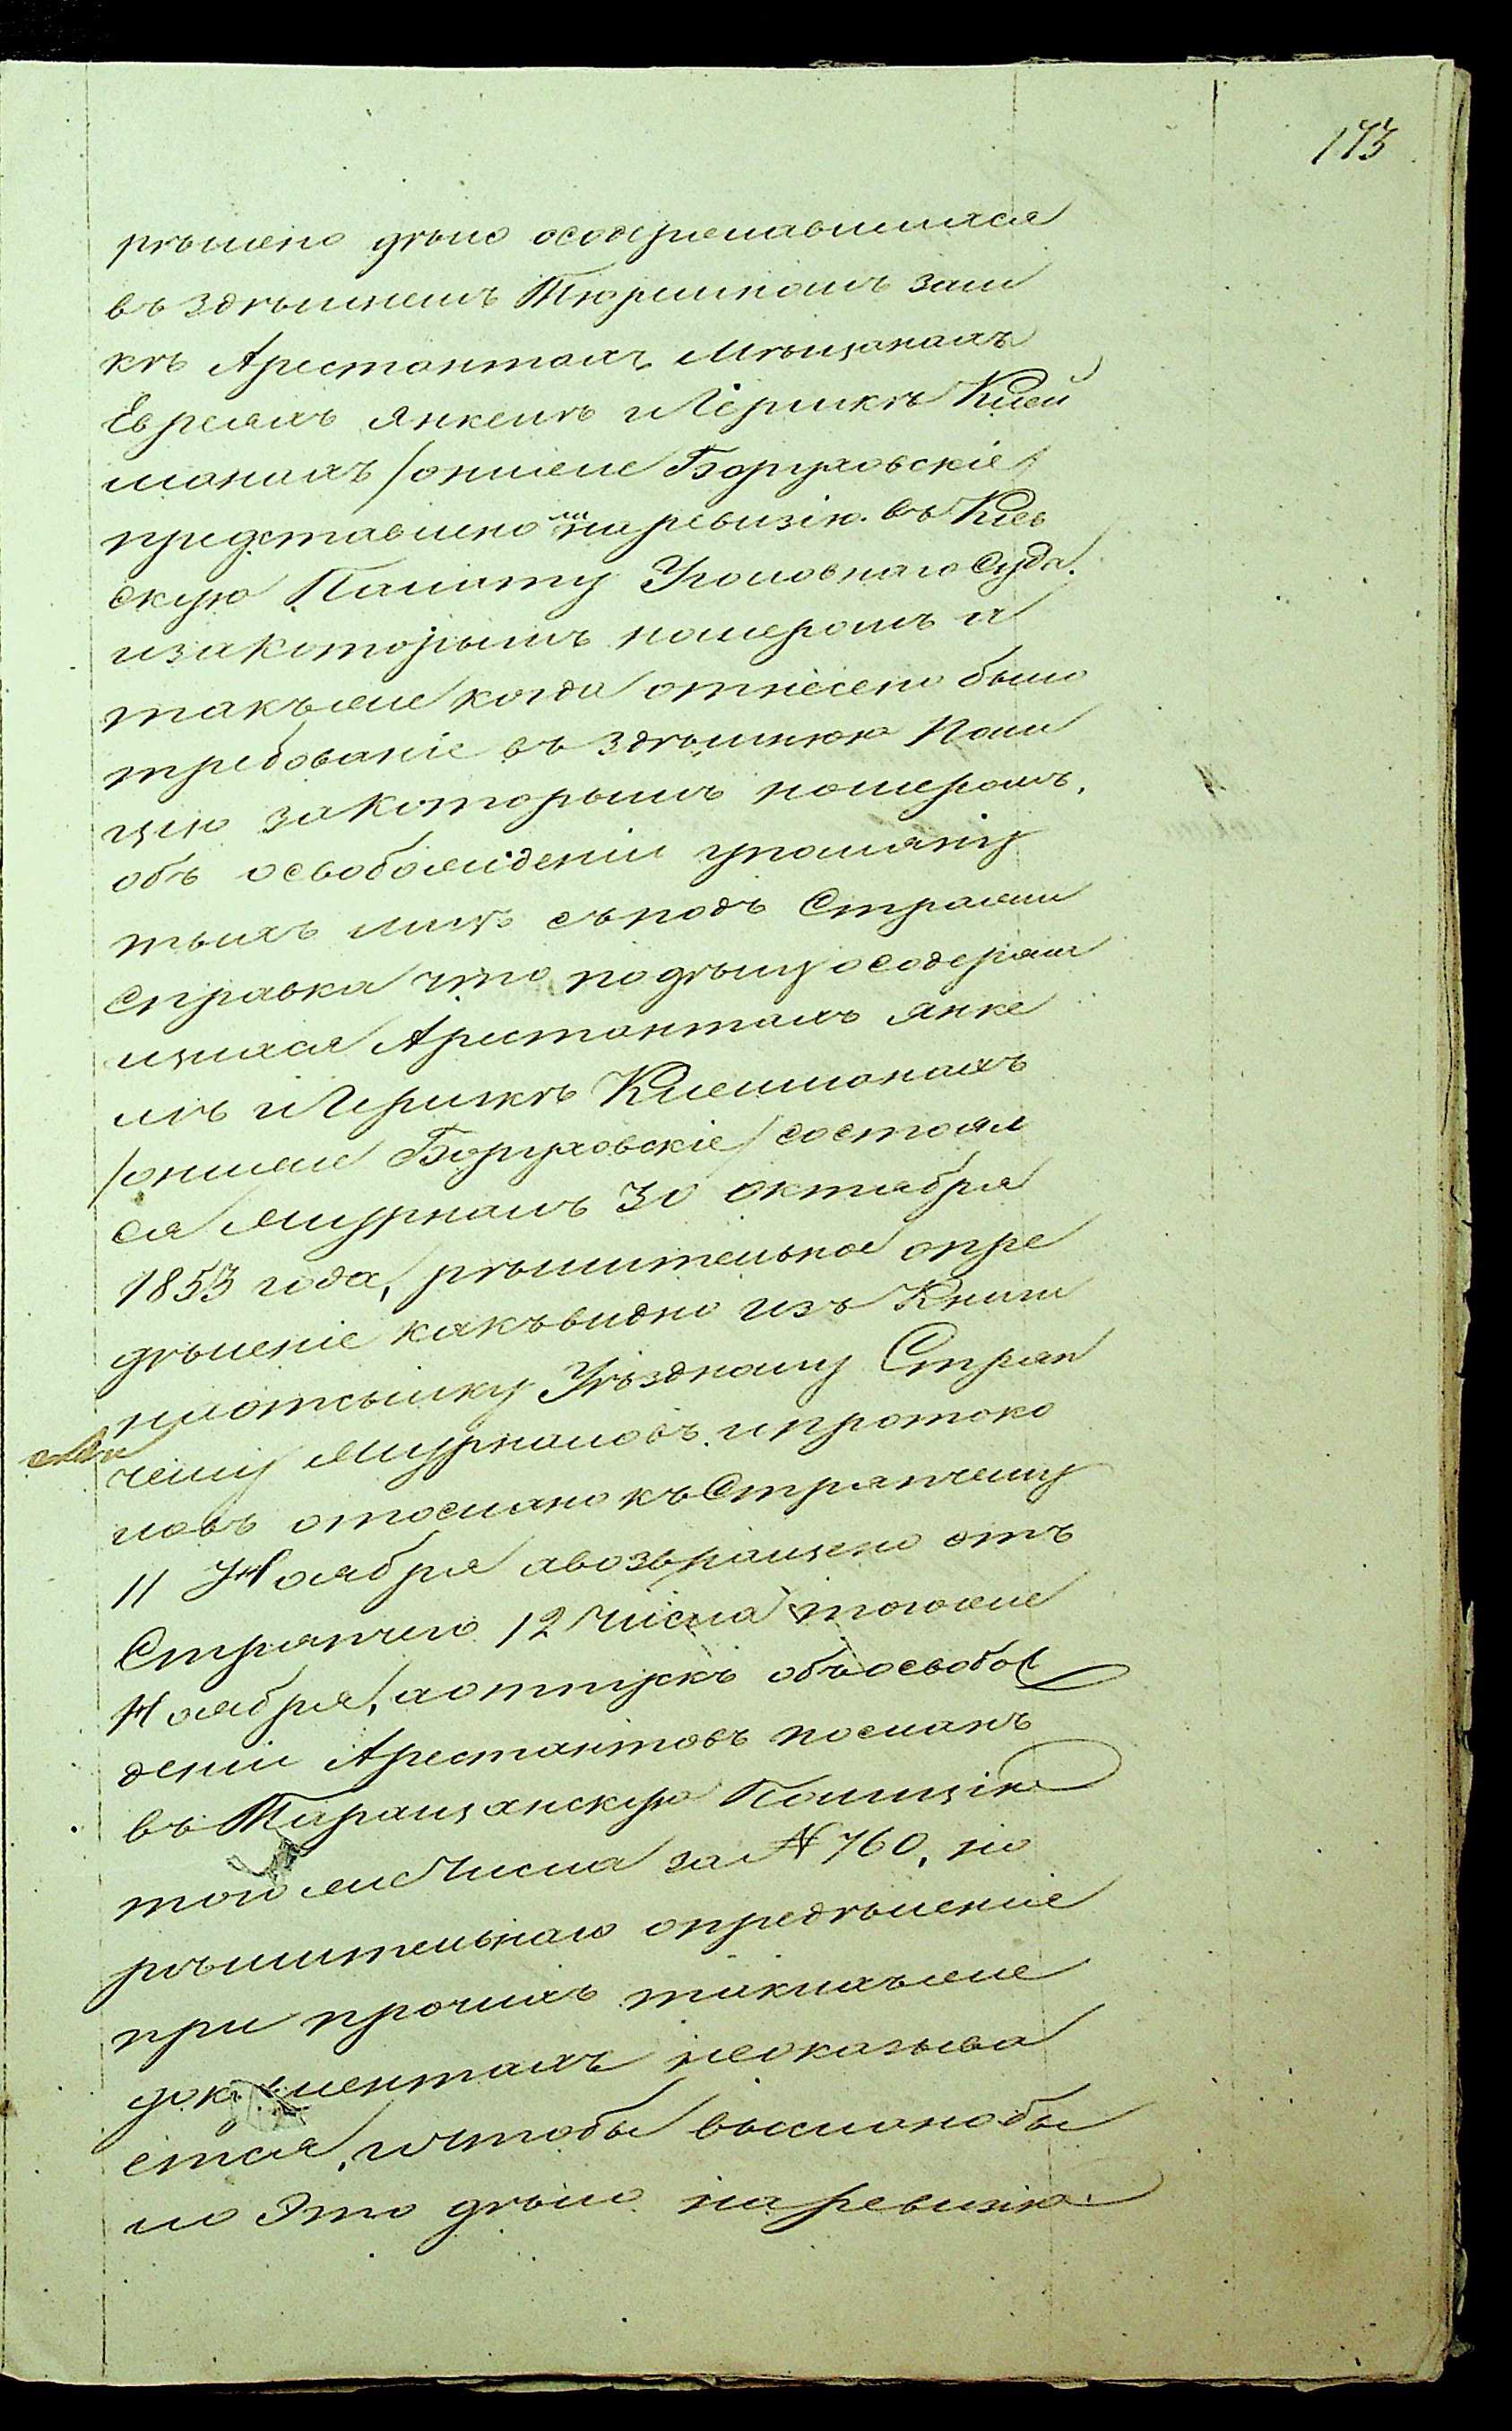 173
рѣшено дѣло осодержавшихся
въ здѣшнемъ Тюремномъ зам
кѣ Арестантахъ Мѣщанахъ
Евреяхъ Янкелѣ и Гершкѣ Клей
манахъ /онижеже Боруховскіе/
представлено ли на ревизію въ Кіев
скую Палату Уголовнаго Суда
изакоторымъ номеромъ а
такъже когда отнесено было
требованіе въ здѣшнюю Поли
цію закоторымъ номеромъ,
объ освобожденіи упомяну
тыхъ лицъ съподъ Стражи
Справка что подѣлу осодержа
щихся Арестантахъ Янке
лѣ и Гершкѣ Клейманахъ
/ониже Боруховскіе/ состоял
ся Журналъ 30 Октября
1853 года, рѣшительное опре
дѣленіе какъвидно изъ Книги
наотсылку Уѣздному Стряп
чему Журналовъ и протоко
ловъ отослано къ Стряпчему
11 Ноября авозвращено отъ
Стряпчего 12 Числа тогоже
Ноября, аотпускъ объосвобож
деніи Арестантовъ посланъ
въ Таращанскую Полицію
тогоже Числа за № 760, но
рѣшительнаго опредѣленіе
при прочихъ такихъже
документахъ неоказыва
ется, ичтобы выслано бы
ло Это дѣло на ревизію.